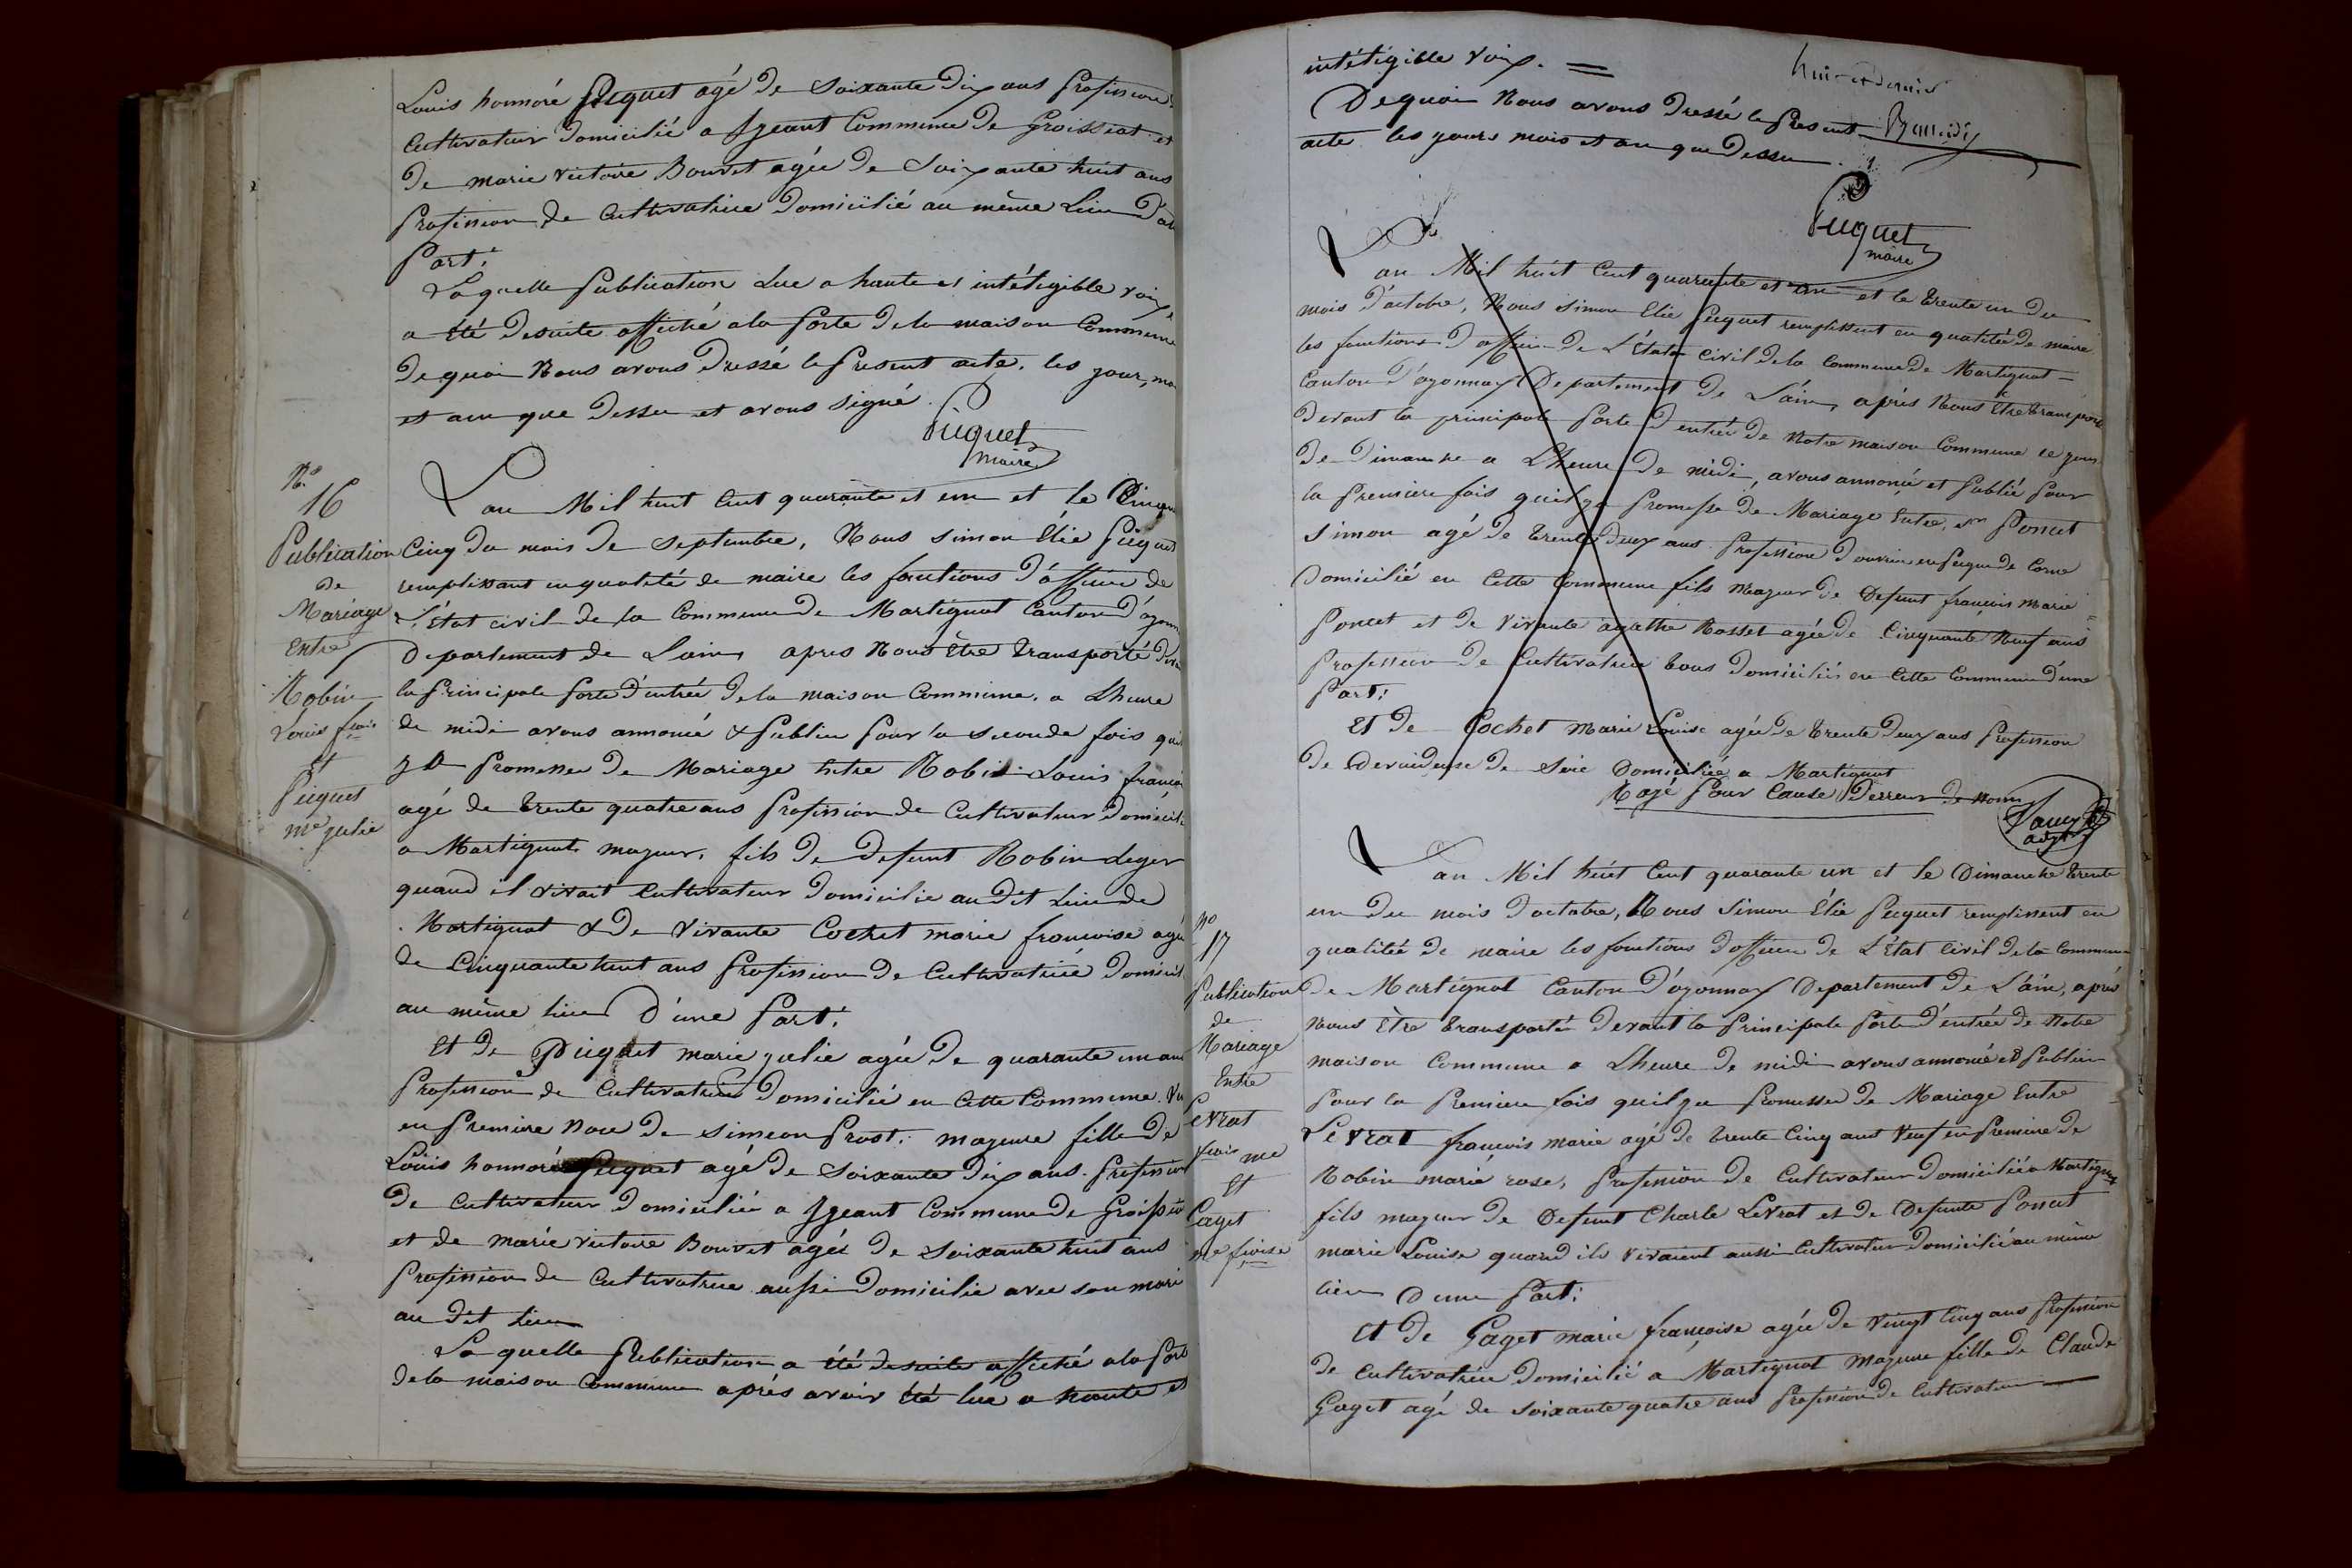 Louis honnoré Picquet agé De Soixante Dix ans Profession
Cultivateur Domicilié a Jgeant Commune De Groissiat et
De marie victoire Bouvet agée De Soixante huit ans
Profession de Cultivatrice Domicilié au même Lieu D'au
Part.
Laquelle Publication Lue a haute et intéligible voix
a été Desuite affiché a la Porte De la maison Commune
De quoi Nous avons Dressé le Present acte. les jour, mo
et an que Dessu et avons signé.
Picquet
maire
No.
16
Publication
de
Mariage
Entre
Robin
Louis frois
et
Picquet
me julie
Lan Mil huit Cent quarante et un et le
Cinq du mois De Septembre, Nous simon Elie Picquet
remplissant en qualité de maire les fonctions D'officier de
L'état civil de la Commune De Martignat Canton D'oyonn
Departement de Lain, apres Nous Etre transporté Deva
la Principale Porte D'entrée De la maison Commune. a Lheure
de midi avons annoncé & Publier Pour la seconde fois qui
y a Promesse De Mariage Entre Robin Louis françoi
agé de trente quatre ans Profession de Cultivateur Domicili
a Martignat. mageur, fils De Defunt Robin Leger
quand il vivait Cultivateur Domicilie audit Lieu de
Martignat & De vivante Cochet marie francoise agée
de Cinquante huit ans Profession de Cultivatrice Domicil
au même lieu D'une Part.
Et De Picquet marie julie agée De quarante un ans
Profession de Cultivatrice Domicilié en Cette Commune. Vu
en Premiere Noce De Simeon Prost. mageure fille De
Louis honnoré Picquet agé De Soixante Dix ans. Profession
De Cultivateur Domicilié a Jgeant Commune De Groissia
et de marie victoire Bouvet agée De Soixante huit ans
Profession de Cultivatrice aussi Domicilie avec son mari
au dit Lieu
La quelle Publication a été desuite affiché a la Porte
De la maison Commune après avoir été lue a haute et
intéligible voix.
De quoi Nous avons Dressé le Present
acte les jours mois et an que Dessu.
Picquet
maire
Lan Mil huit Cent quarante et un et le trente un Du
mois D'octobre, Nous simon Elie Picquet remplissent en qualité De maire
les fonctions D'officier De L'état Civil de la Commune De Martignat
Canton D'oyonnax Departement De L'ain, après Nous Etre transporté
Devant la principale Porte D'entrée De Notre maison Commune ce jour
De Dimanche a Lheure De midi, avons annoncé et Publié Pour
la Premiere fois quil y a Promesse De Mariage Entre, sr Poncet
Simon agé De trente Deux ans Profession D'ouvrier en Peigne de Corne
Domicilié en Cette Commune fils Mageur De Defunt françois Marie
Poncet et de vivante agathe Rosset agée De Cinquante Neuf ans
Profession De Cultivatrice tous Domiciliés en Cette Commune D'une
Part.
Et De Cochet Marie Louise agée De trente Deux ans Profession
De Devideuse De Soie Domiciliée a Martignat
Rayé Pour Cause Derreur De Nom
No
17
Publication
de
Mariage
Entre
LeVrat
frois me
Et
Gaget
me froise
Lan Mil huit Cent quarante un et le Dimanche trente
un Du mois D'octobre, Nous Simon Elie Picquet remplissent en
qualité De maire les fonctions D'officier De L'état Civil De la Commune
De Martignat Canton D'oyonnax Departement De L'ain, après
Nous Être transporté Devant la Principale Porte D'entrée De Notre
maison Commune a Lheure De midi avons annoncé et Publier
Pour la Premiere fois quil y a Promesse De Mariage Entre
LeVrat francois marie agé De trente Cinq ans Veuf en Premiere De
Robin marie rose, Profession De Cultivateur Domicilié a Martignat
fils mageur De Defunt Charle LeVrat et De Defunte Poncet
marie Louise quand ils vivaient aussi Cultivateur Domicilié au même
lieu D'une Part.
Et De Gaget marie françoise agée De Vingt Cinq ans Profession
De Cultivatrice Domicilié a Martignat Mageure fille De Claude
Gaget agé De Soixante quatre ans Profession De Cultivateur